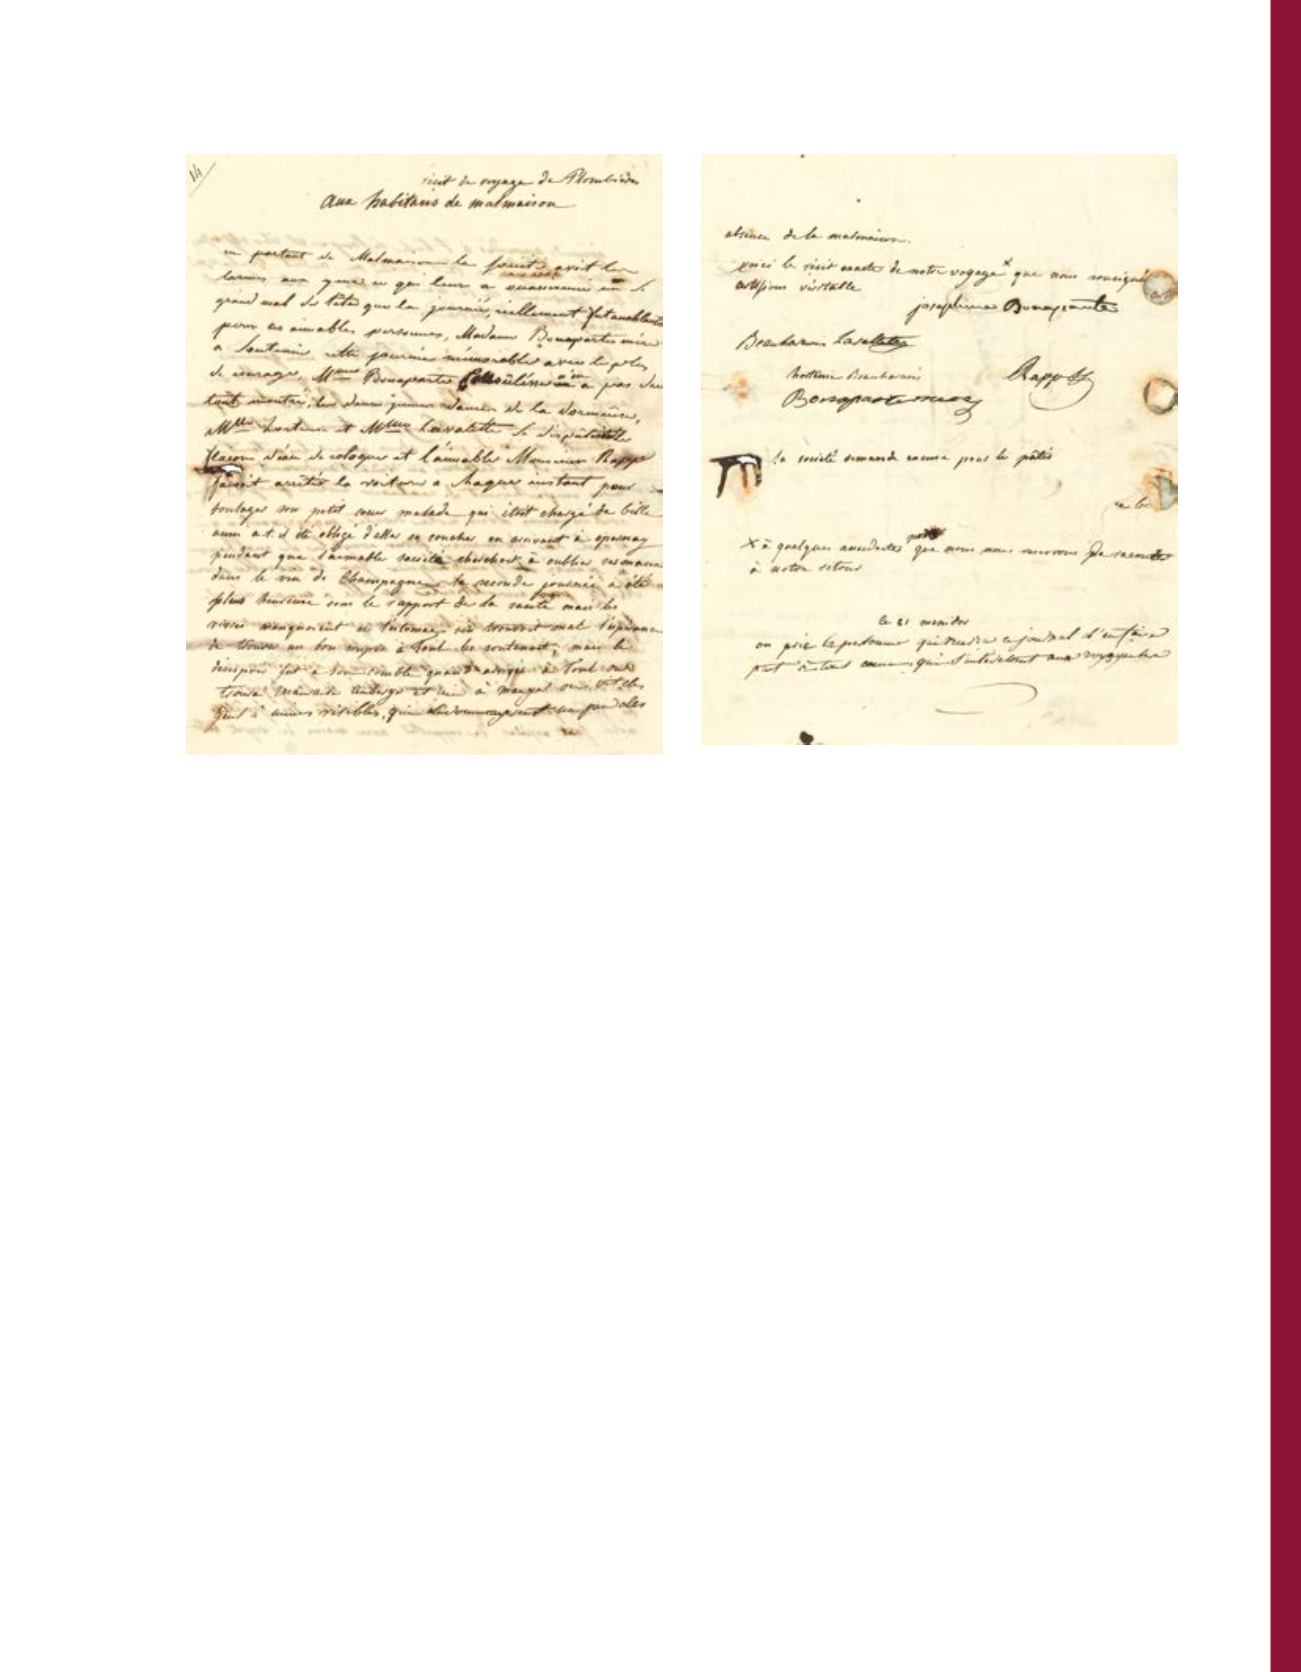 14
récit de voyage de Plombières
aux habitans de malmaison
en partant de Malmaison la société avoit les
larmes aux yeux ce qui leur a occasionné un si
grand mal de tête que la journée, réellement fut accablante
pour ces aimables personnes, Madame Bonaparte mère
a soutenu cette journée mémorable avec le plus
de courage, Mme Bonaparte Consulesse n'en a pas du
tout montré, les deux jeunes dames de la dormeuse,
Mlle hortense et Mme Lavalette se disputoient le
flacon d'eau de cologne et l'aimable Monsieur Rapp
faisoit arrêter la voiture a chaque instant pour
soulager son petit cœur malade qui étoit chargé de bille
aussi a-t-il été obligé d'aller se coucher en arrivant à épernay
pendant que l'aimable société cherchoit à oublier ses maux
dans le vin de Champagne. la seconde journée a été
plus heureuse sous le rapport de la santé mais les
vivres manquoient et l'estomac s'en trouvoit mal l'espérance
de trouver un bon souper à Toul les soutenoit, mais le
désespoir fut à son comble quand arrivés à Toul on
trouva mauvaise auberge et rien à manger on vit des
gens à
absence de la malmaison.
voici le récit exacte de notre voyage x que nous
certifions véritable
josephine Bonaparte
Beauharnais Lavallette
hortense Beauharnais
Rapp
Bonaparte mere
la société demande excuse pour les pâtés
x à quelques anecdotes près que nous nous reservons de raconter
à notre retour
le 21 messidor
on prie la personne qui recevra ce journal d'en faire
part à tous ceux qui s'intéressent aux voyageuses